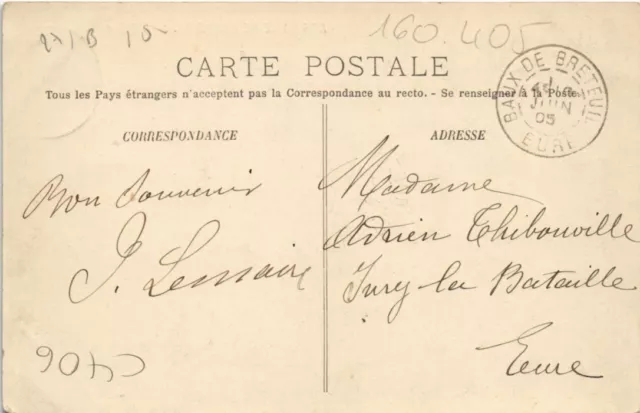 160.405
CARTE POSTALE
Tous les Pays étrangers n'acceptent pas la Correspondance au recto. - Se renseigner à la Poste.
BAUX DE BRETEUIL
JUIN
05
EURE
CORRESPONDANCE
ADRESSE
Bon Souvenir
J. Lemaire
Madame
Adrien Thibouville
Ivry-la Bataille
Eure
C406